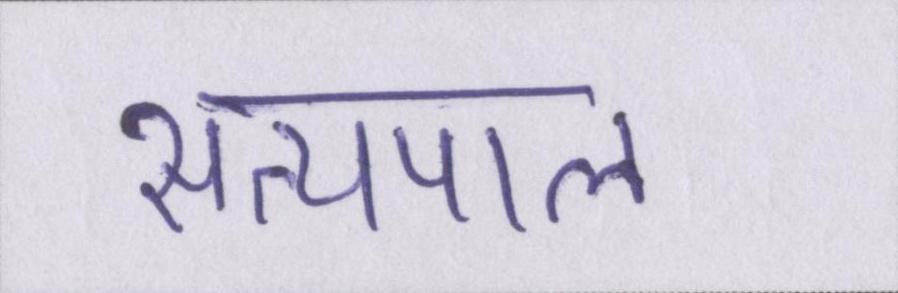 सत्यपाल